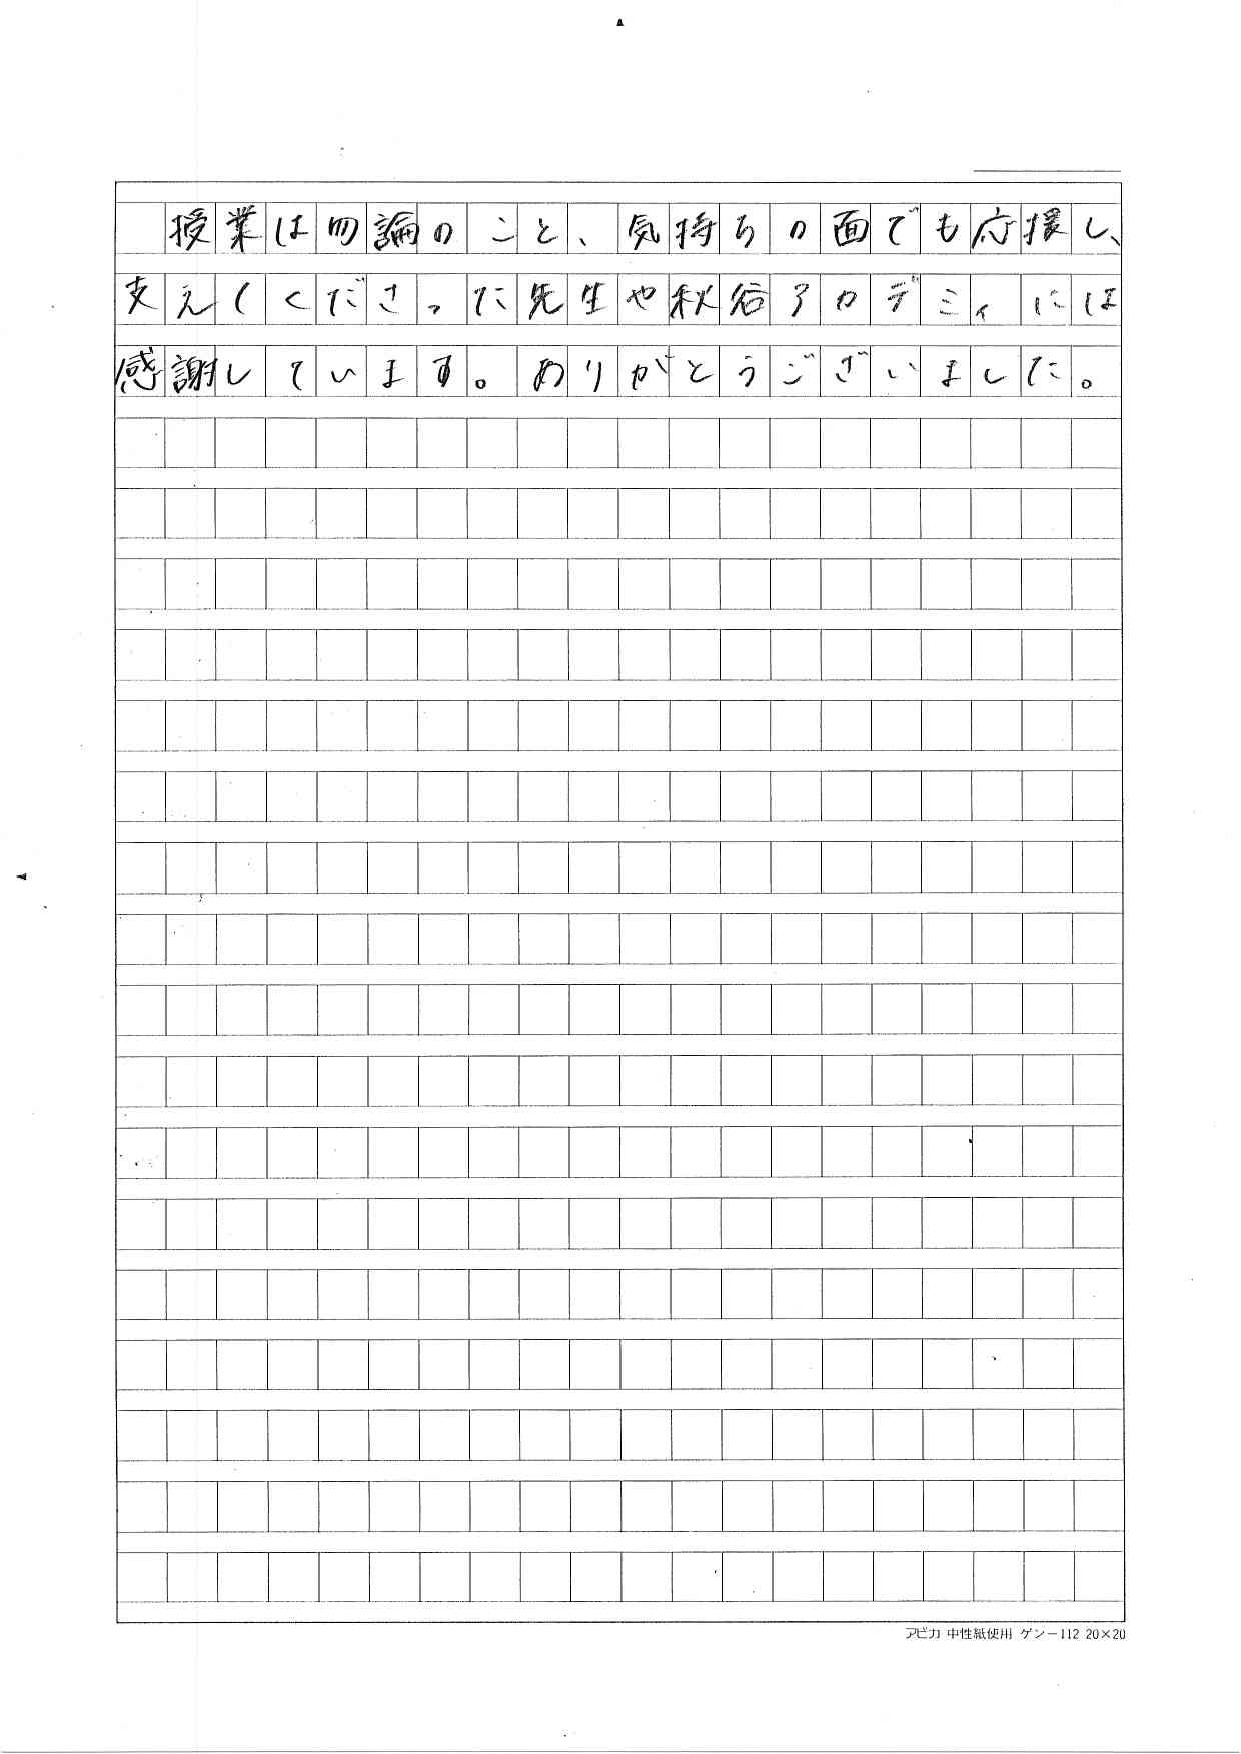 授業は勿論のこと、気持ちの面でも応援し、
支えてくださった先生や秋谷アカデミィには
感謝しています。ありがとうございました。
アピカ 中性紙使用 ゲン－112 20×20